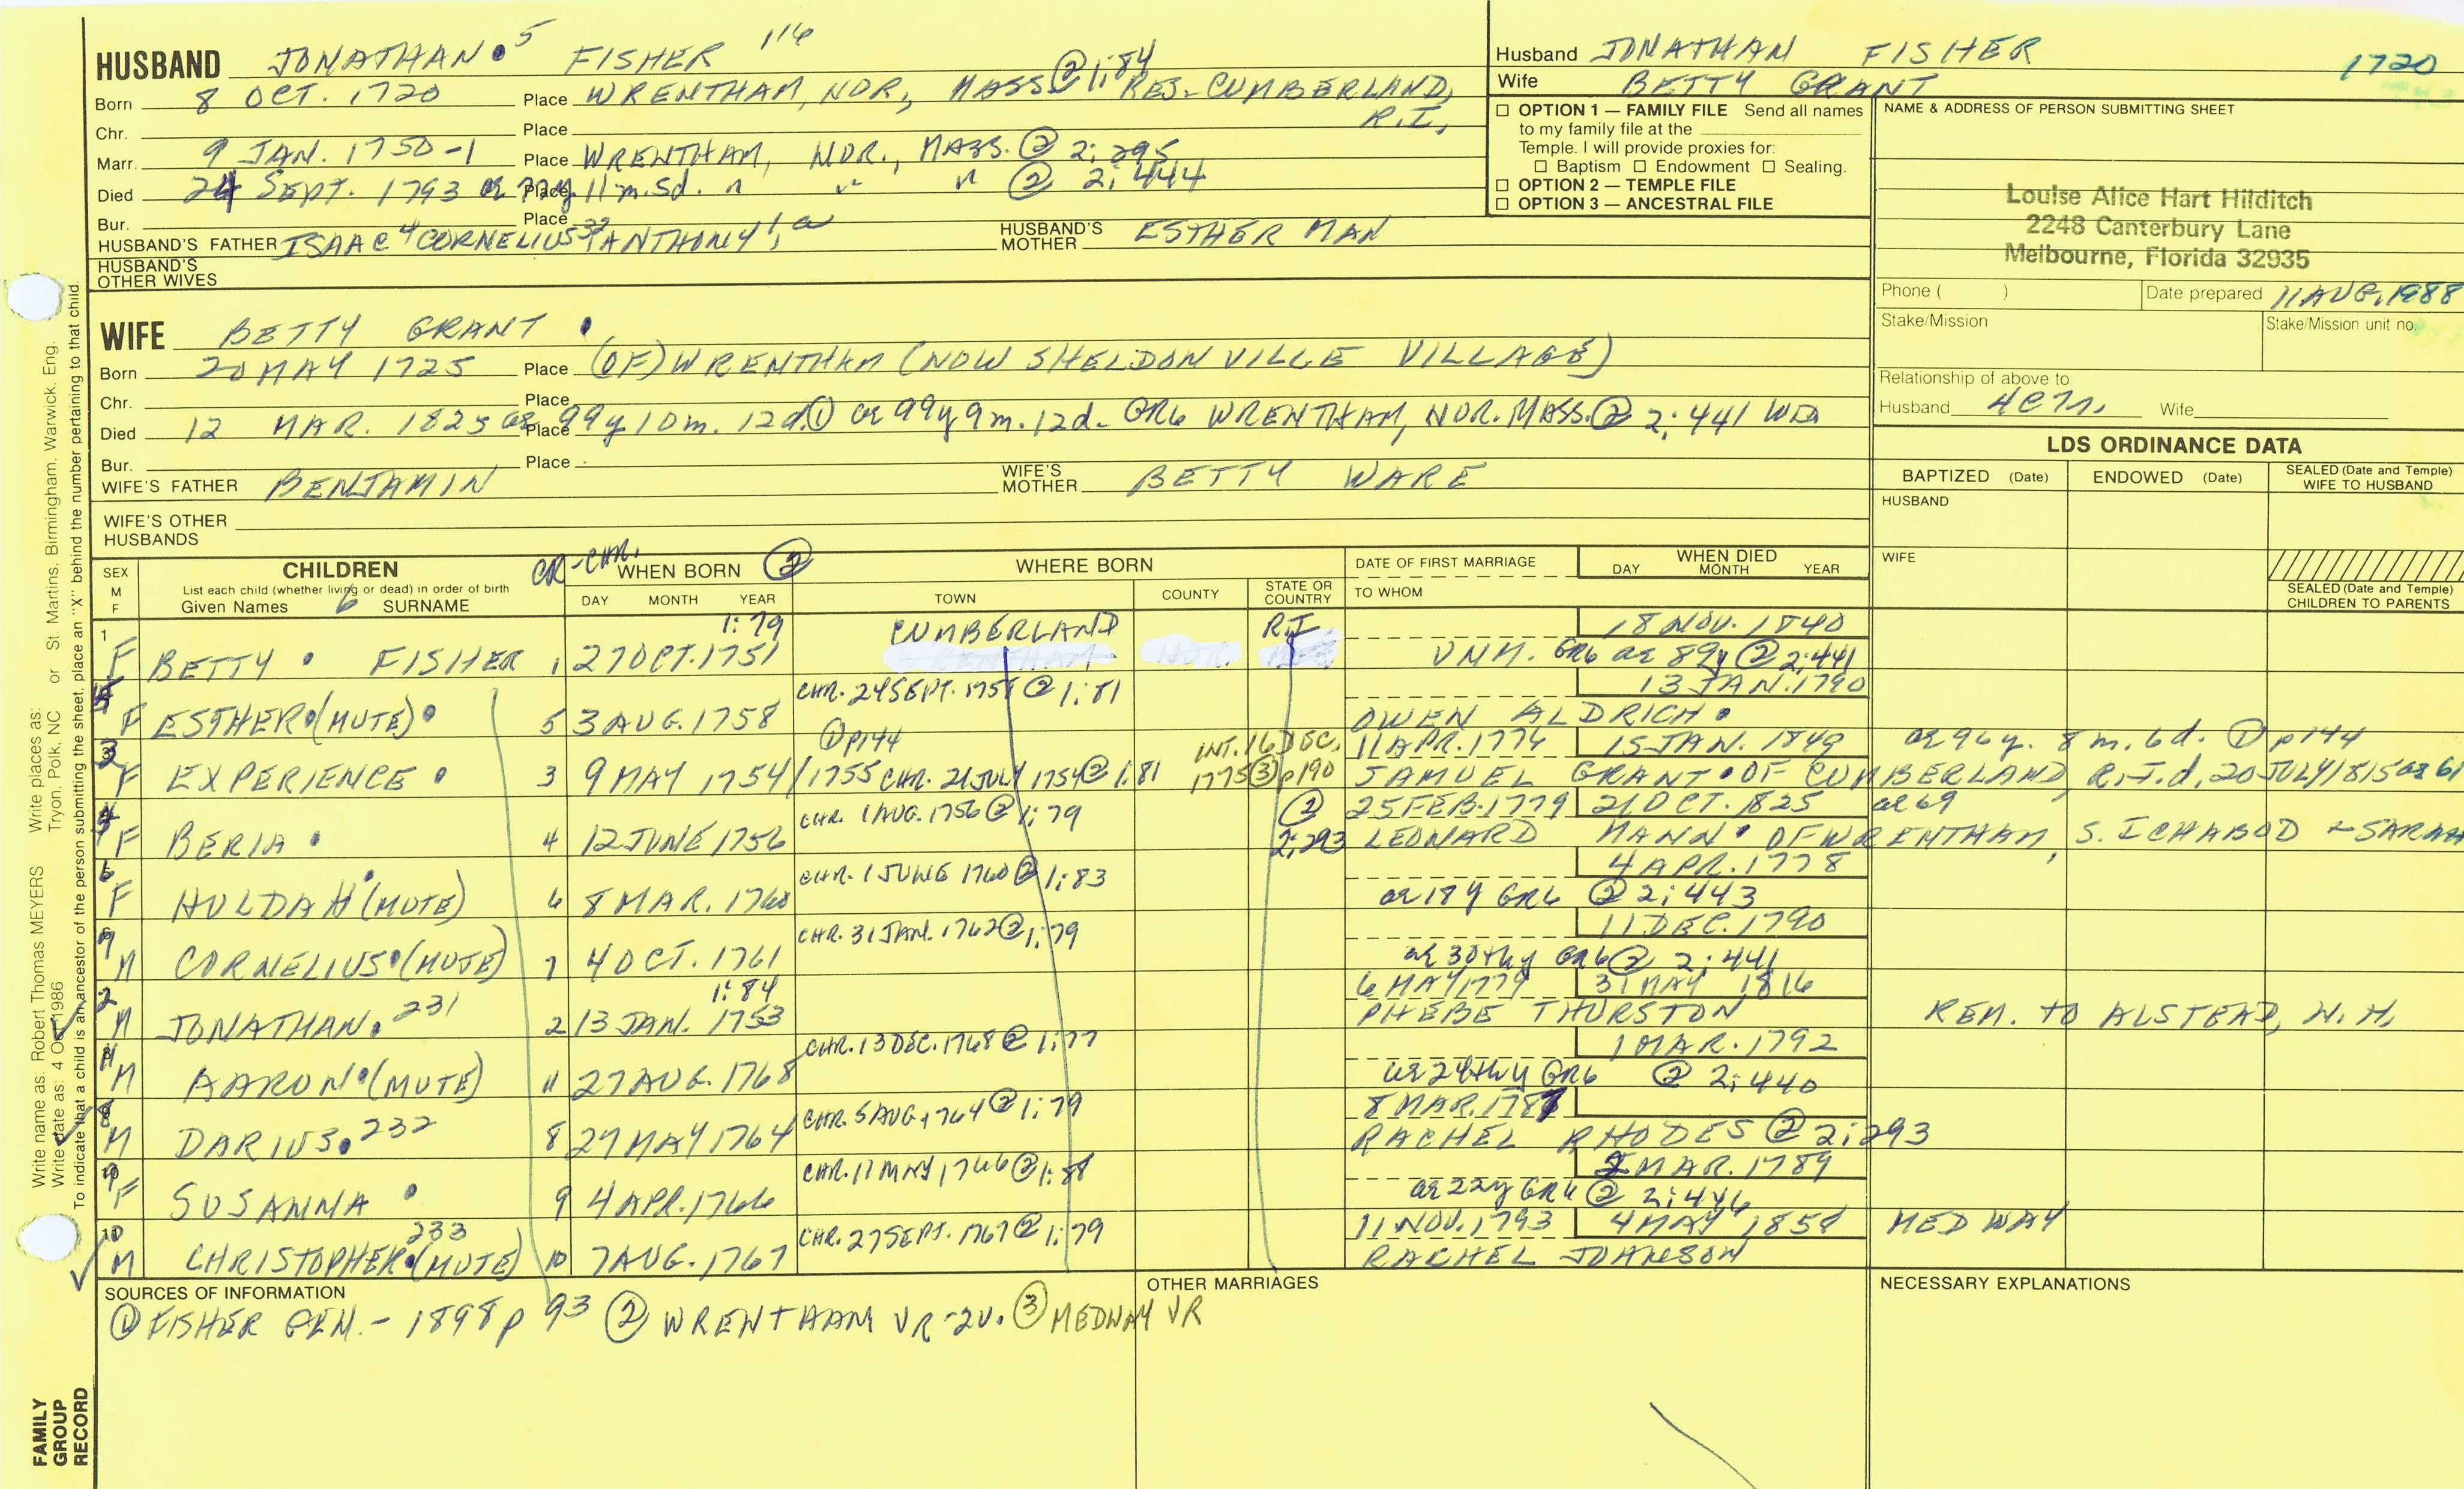 HUSBAND JONATHAN 5 FISHER 116
Born 8 OCT. 1720 Place WRENTHAM, NOR., MASS. ② 1:84 RES. CUMBERLAND, R.I.
Chr. Place
Marr. 9 JAN. 1750-1 Place WRENTHAM, NOR., MASS. ② 2:295
Died 24 SEPT. 1793 Place 11 m. 5d. " " " ② 2:444
Bur. Place
HUSBAND'S FATHER ISAAC 4 CORNELIUS ANTHONY HUSBAND'S MOTHER ESTHER MAN
HUSBAND'S OTHER WIVES
WIFE BETTY GRANT
Born 20 MAY 1725 Place (OF) WRENTHAM (NOW SHELDONVILLE VILLAGE)
Chr. Place
Died 12 MAR. 1825 ae 99y 10m. 12d. ① ae 99y 9m. 12d. GR6 Place WRENTHAM, NOR. MASS. ② 2:441
Bur. Place
WIFE'S FATHER BENJAMIN WIFE'S MOTHER BETTY WARE
WIFE'S OTHER HUSBANDS
Husband JONATHAN FISHER 1720
Wife BETTY GRANT
OPTION 1 — FAMILY FILE Send all names
to my family file at the
Temple. I will provide proxies for:
Baptism Endowment Sealing.
OPTION 2 — TEMPLE FILE
OPTION 3 — ANCESTRAL FILE
NAME & ADDRESS OF PERSON SUBMITTING SHEET
Louise Alice Hart Hilditch
2248 Canterbury Lane
Melbourne, Florida 32935
Phone ( ) Date prepared 11 AUG. 1988
Stake/Mission Stake/Mission unit no.
Relationship of above to
Husband 4C7r. Wife
LDS ORDINANCE DATA
BAPTIZED (Date) ENDOWED (Date) SEALED (Date and Temple) WIFE TO HUSBAND
HUSBAND
WIFE
SEALED (Date and Temple) CHILDREN TO PARENTS
SEX M F CHILDREN
List each child (whether living or dead) in order of birth
Given Names SURNAME
CR-CHR. WHEN BORN ②
DAY MONTH YEAR
WHERE BORN
TOWN COUNTY STATE OR COUNTRY
DATE OF FIRST MARRIAGE
TO WHOM
WHEN DIED
DAY MONTH YEAR
1 1:79 CUMBERLAND R.I. 18 NOV. 1840
F BETTY FISHER 1 27 OCT. 1751 UNM. GR6 ae 89y ② 2:441
CHR. 24 SEPT. ② 1:81 13 JAN. 1790
F ESTHER (MUTE) 5 3 AUG. 1758 OWEN ALDRICH
3 ① p144 INT. 16 DEC. 11 APR. 1776 15 JAN. 1849 ae 96y. 8m. 6d. ① p144
F EXPERIENCE 3 9 MAY 1754/1755 CHR. 21 JULY 1754 ② 1:81 1775 ③ p190 SAMUEL GRANT OF CUMBERLAND, R.I. d. 20 JULY 1815 ae 61
CHR. 1 AUG. 1756 ② 1:79 ② 25 FEB. 1779 21 OCT. 1825 ae 69
F BERIA 4 12 JUNE 1756 2:293 LEONARD MANN OF WRENTHAM, S. ICHABOD & SARAH
CHR. 1 JUNE 1760 ② 1:83 4 APR. 1778
F HULDAH (MUTE) 6 8 MAR. 1760 ae 18y GR6 ② 2:443
CHR. 31 JAN. 1762 ② 1:79 11 DEC. 1790
M CORNELIUS (MUTE) 7 4 OCT. 1761 ae 30thy GR6 ② 2:441
2 1:84 6 MAY 1779 31 MAY 1816
M JONATHAN. 231 2 13 JAN. 1753 PHEBE THURSTON REM. TO ALSTEAD, N.H.
CHR. 13 DEC. 1768 ② 1:77 1 MAR. 1792
M AARON (MUTE) 11 27 AUG. 1768 ae 24thy GR6 ② 2:440
8 CHR. 5 AUG. 1764 ② 1:79 8 MAR. 1787
M DARIUS. 232 8 27 MAY 1764 RACHEL RHODES ② 2:293
CHR. 11 MAY 1766 ② 1:88 2 MAR. 1789
F SUSANNA 9 4 APR. 1766 ae 22y GR6 ② 2:446
10 233 CHR. 27 SEPT. 1767 ② 1:79 11 NOV. 1793 4 MAY 1858 MEDWAY
M CHRISTOPHER (MUTE) 10 7 AUG. 1767 RACHEL JOHNSON
SOURCES OF INFORMATION
① FISHER GEN. - 1898 p 93 ② WRENTHAM VR-2V. ③ MEDWAY VR
OTHER MARRIAGES
NECESSARY EXPLANATIONS
Write name as: Robert Thomas MEYERS Write places as: St. Martins, Birmingham, Warwick, Eng.
Write date as: 4 Oct 1986 Tryon, Polk, NC or
To indicate that a child is an ancestor of the person submitting the sheet, place an "X" behind the number pertaining to that child.
FAMILY GROUP RECORD